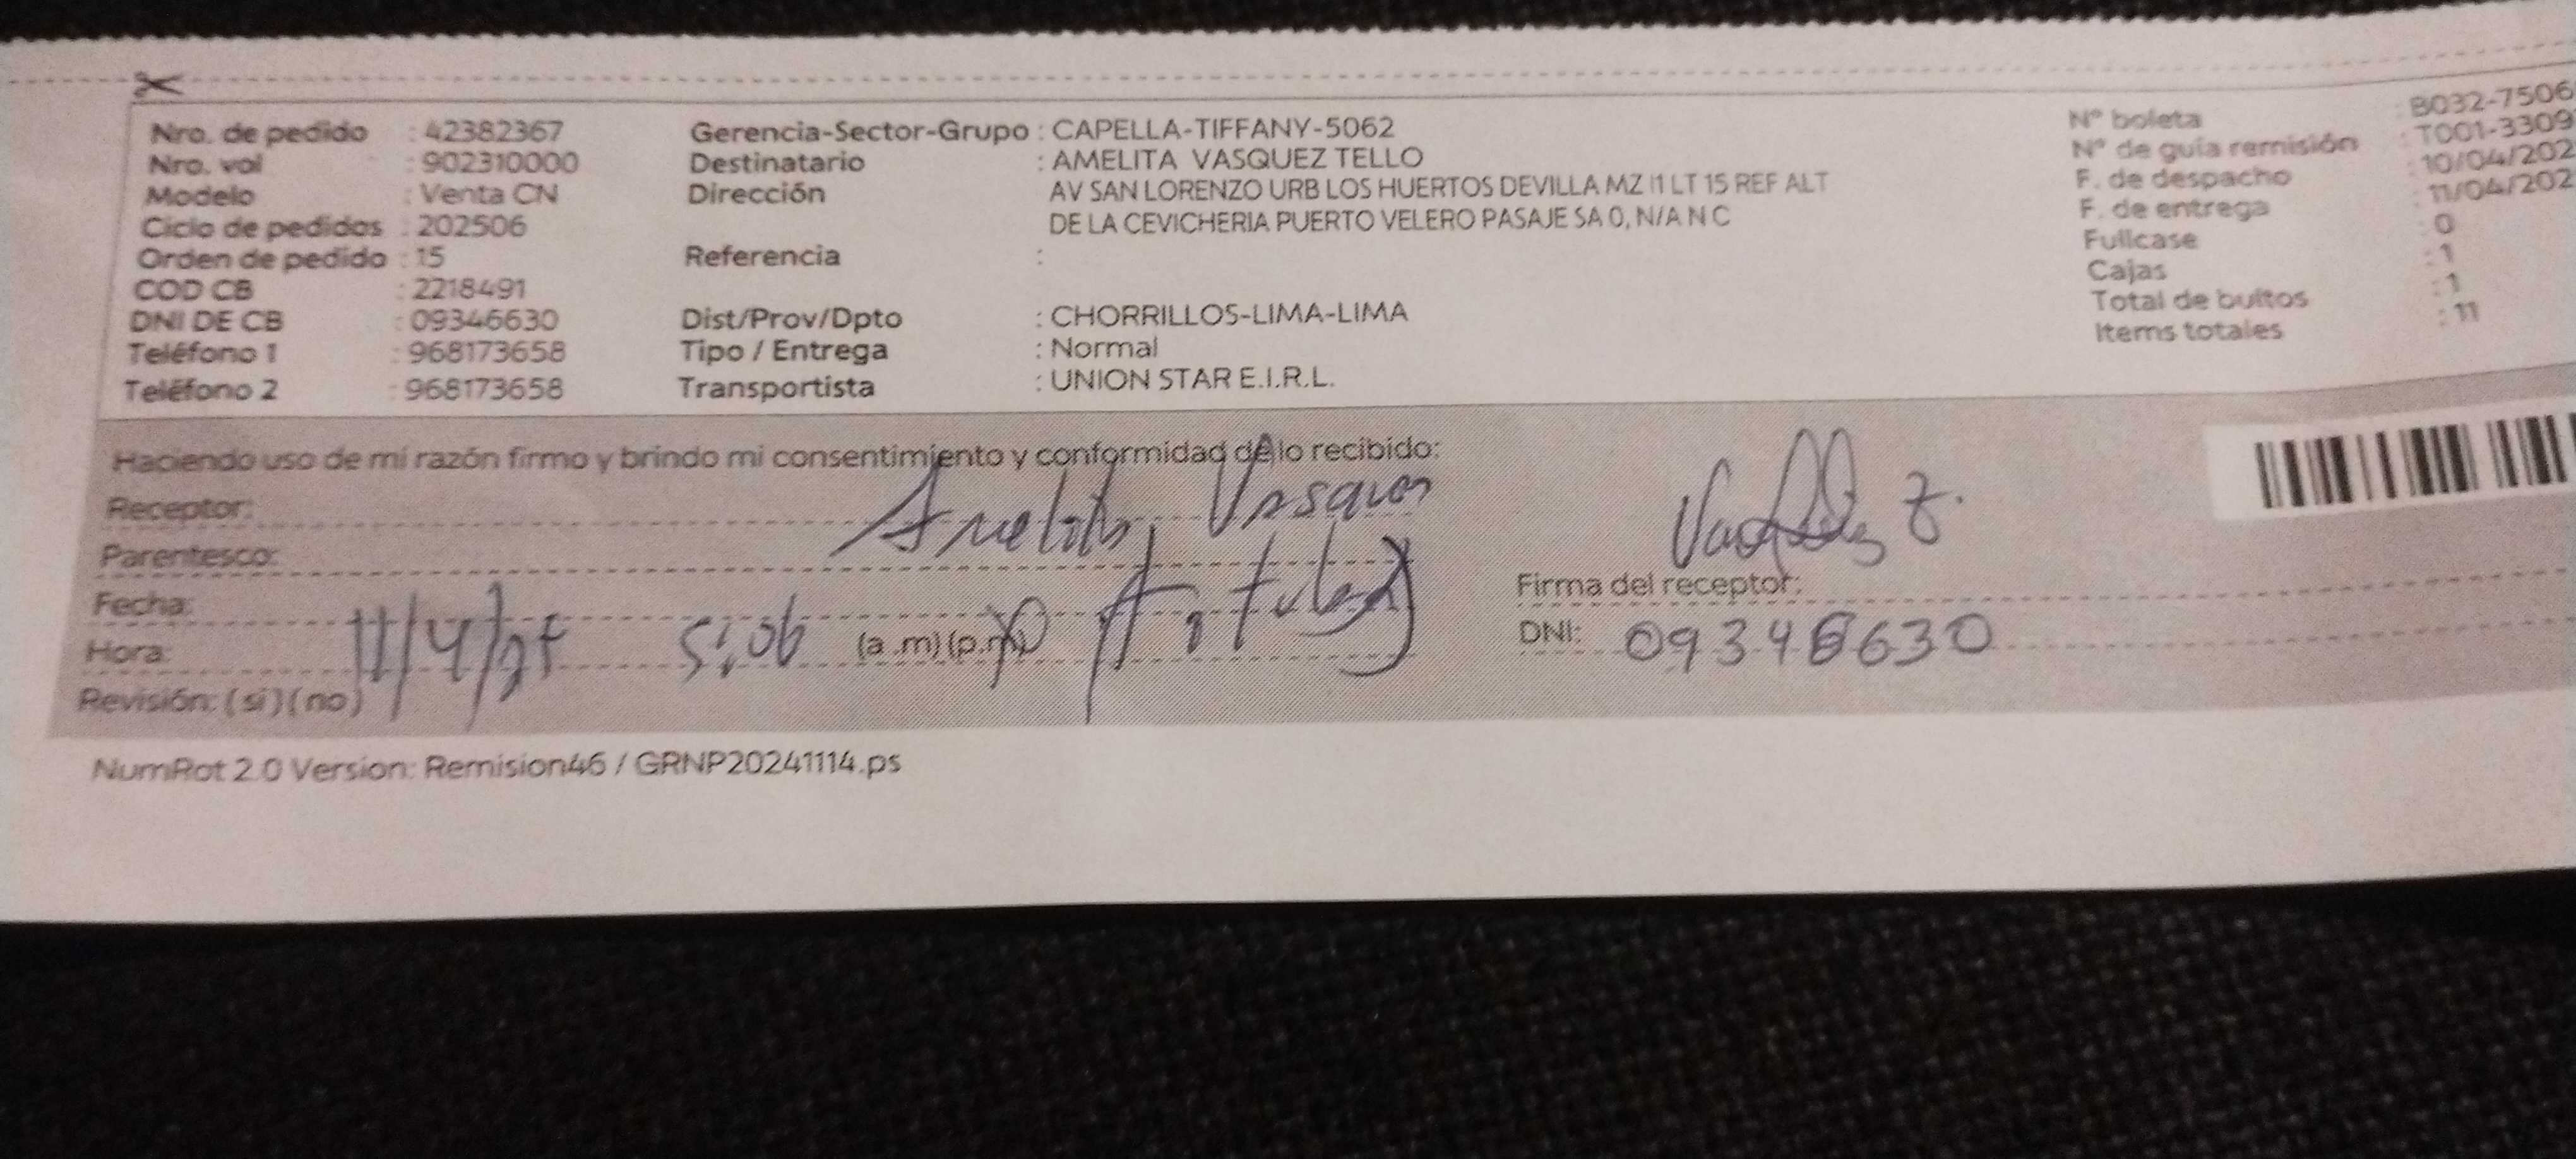 Nro. de pedido : 42382367
Nro. vol : 902310000
Modelo : Venta CN
Ciclo de pedidos : 202506
Orden de pedido : 15
COD CB : 2218491
DNI DE CB : 09346630
Teléfono 1 : 968173658
Teléfono 2 : 968173658
Gerencia-Sector-Grupo : CAPELLA-TIFFANY-5062
Destinatario : AMELITA VASQUEZ TELLO
Dirección AV SAN LORENZO URB LOS HUERTOS DEVILLA MZ I1 LT 15 REF ALT
DE LA CEVICHERIA PUERTO VELERO PASAJE SA 0, N/A N C
Referencia :
Dist/Prov/Dpto : CHORRILLOS-LIMA-LIMA
Tipo / Entrega : Normal
Transportista : UNION STAR E.I.R.L.
N° boleta : B032-7506
N° de guía remisión : T001-3309
F. de despacho : 10/04/202
F. de entrega : 11/04/202
Fullcase : 0
Cajas : 1
Total de bultos : 1
Items totales : 11
Haciendo uso de mi razón firmo y brindo mi consentimiento y conformidad de lo recibido:
Receptor: Amelita Vasquez
Parentesco:
Fecha: 11/4/25
Hora: 5:06 (a .m) (p.m)
Revisión: (si) (no)
Firma del receptor:
DNI: 09346630
NumRot 2.0 Version: Remision46 / GRNP20241114.ps